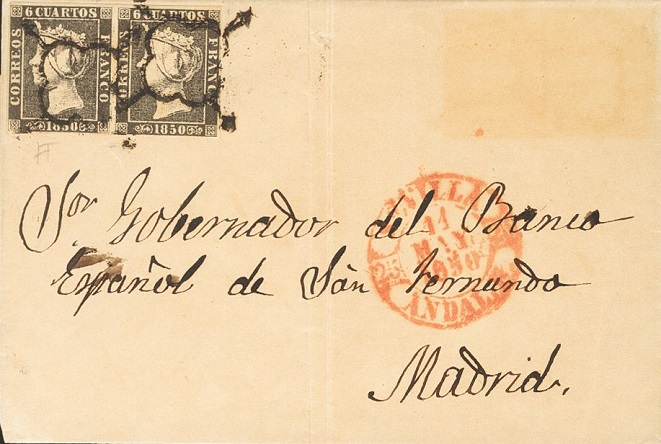 6 CUARTOS 6 CUARTOS
CORREOS FRANCO CORREOS FRANCO
1850 1850
Sor. Gobernador del Banco
Español de San Fernando
Madrid.
SEVILLA
11
MAY
1850
ANDAL